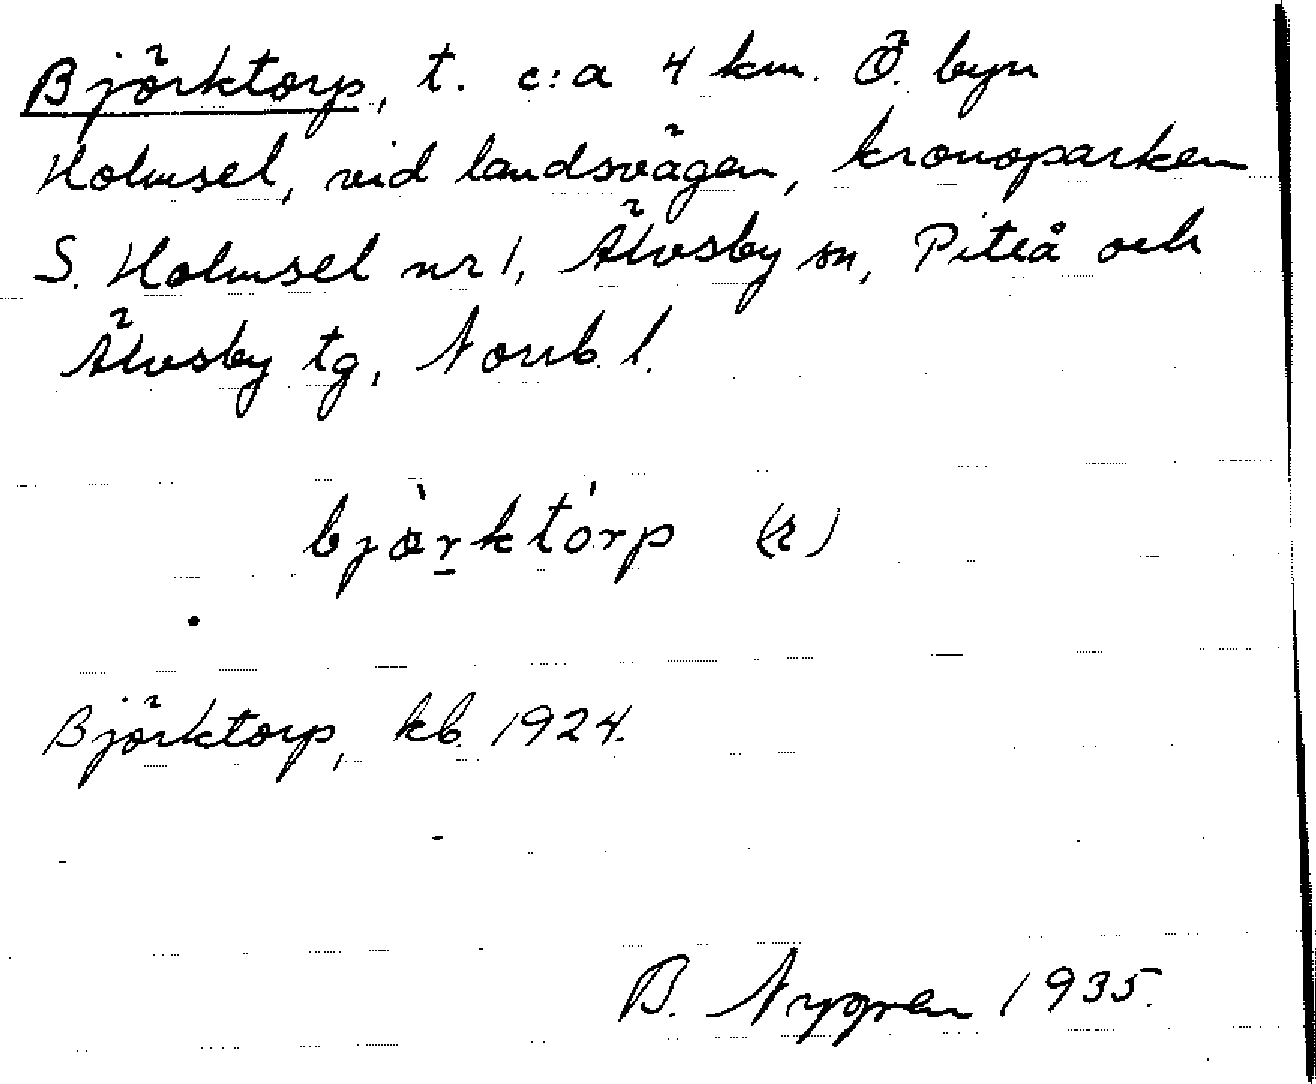 Björktorp, t. c:a 4 km. Ö. byn
Holmsel, vid landsvägen, kronoparken
S. Holmsel nr 1, Älvsby sn, Piteå och
Älvsby tg, Norrb. l.
bjœ̀rktórp (2)
Björktorp, kb. 1924.
B. Nygren 1935.